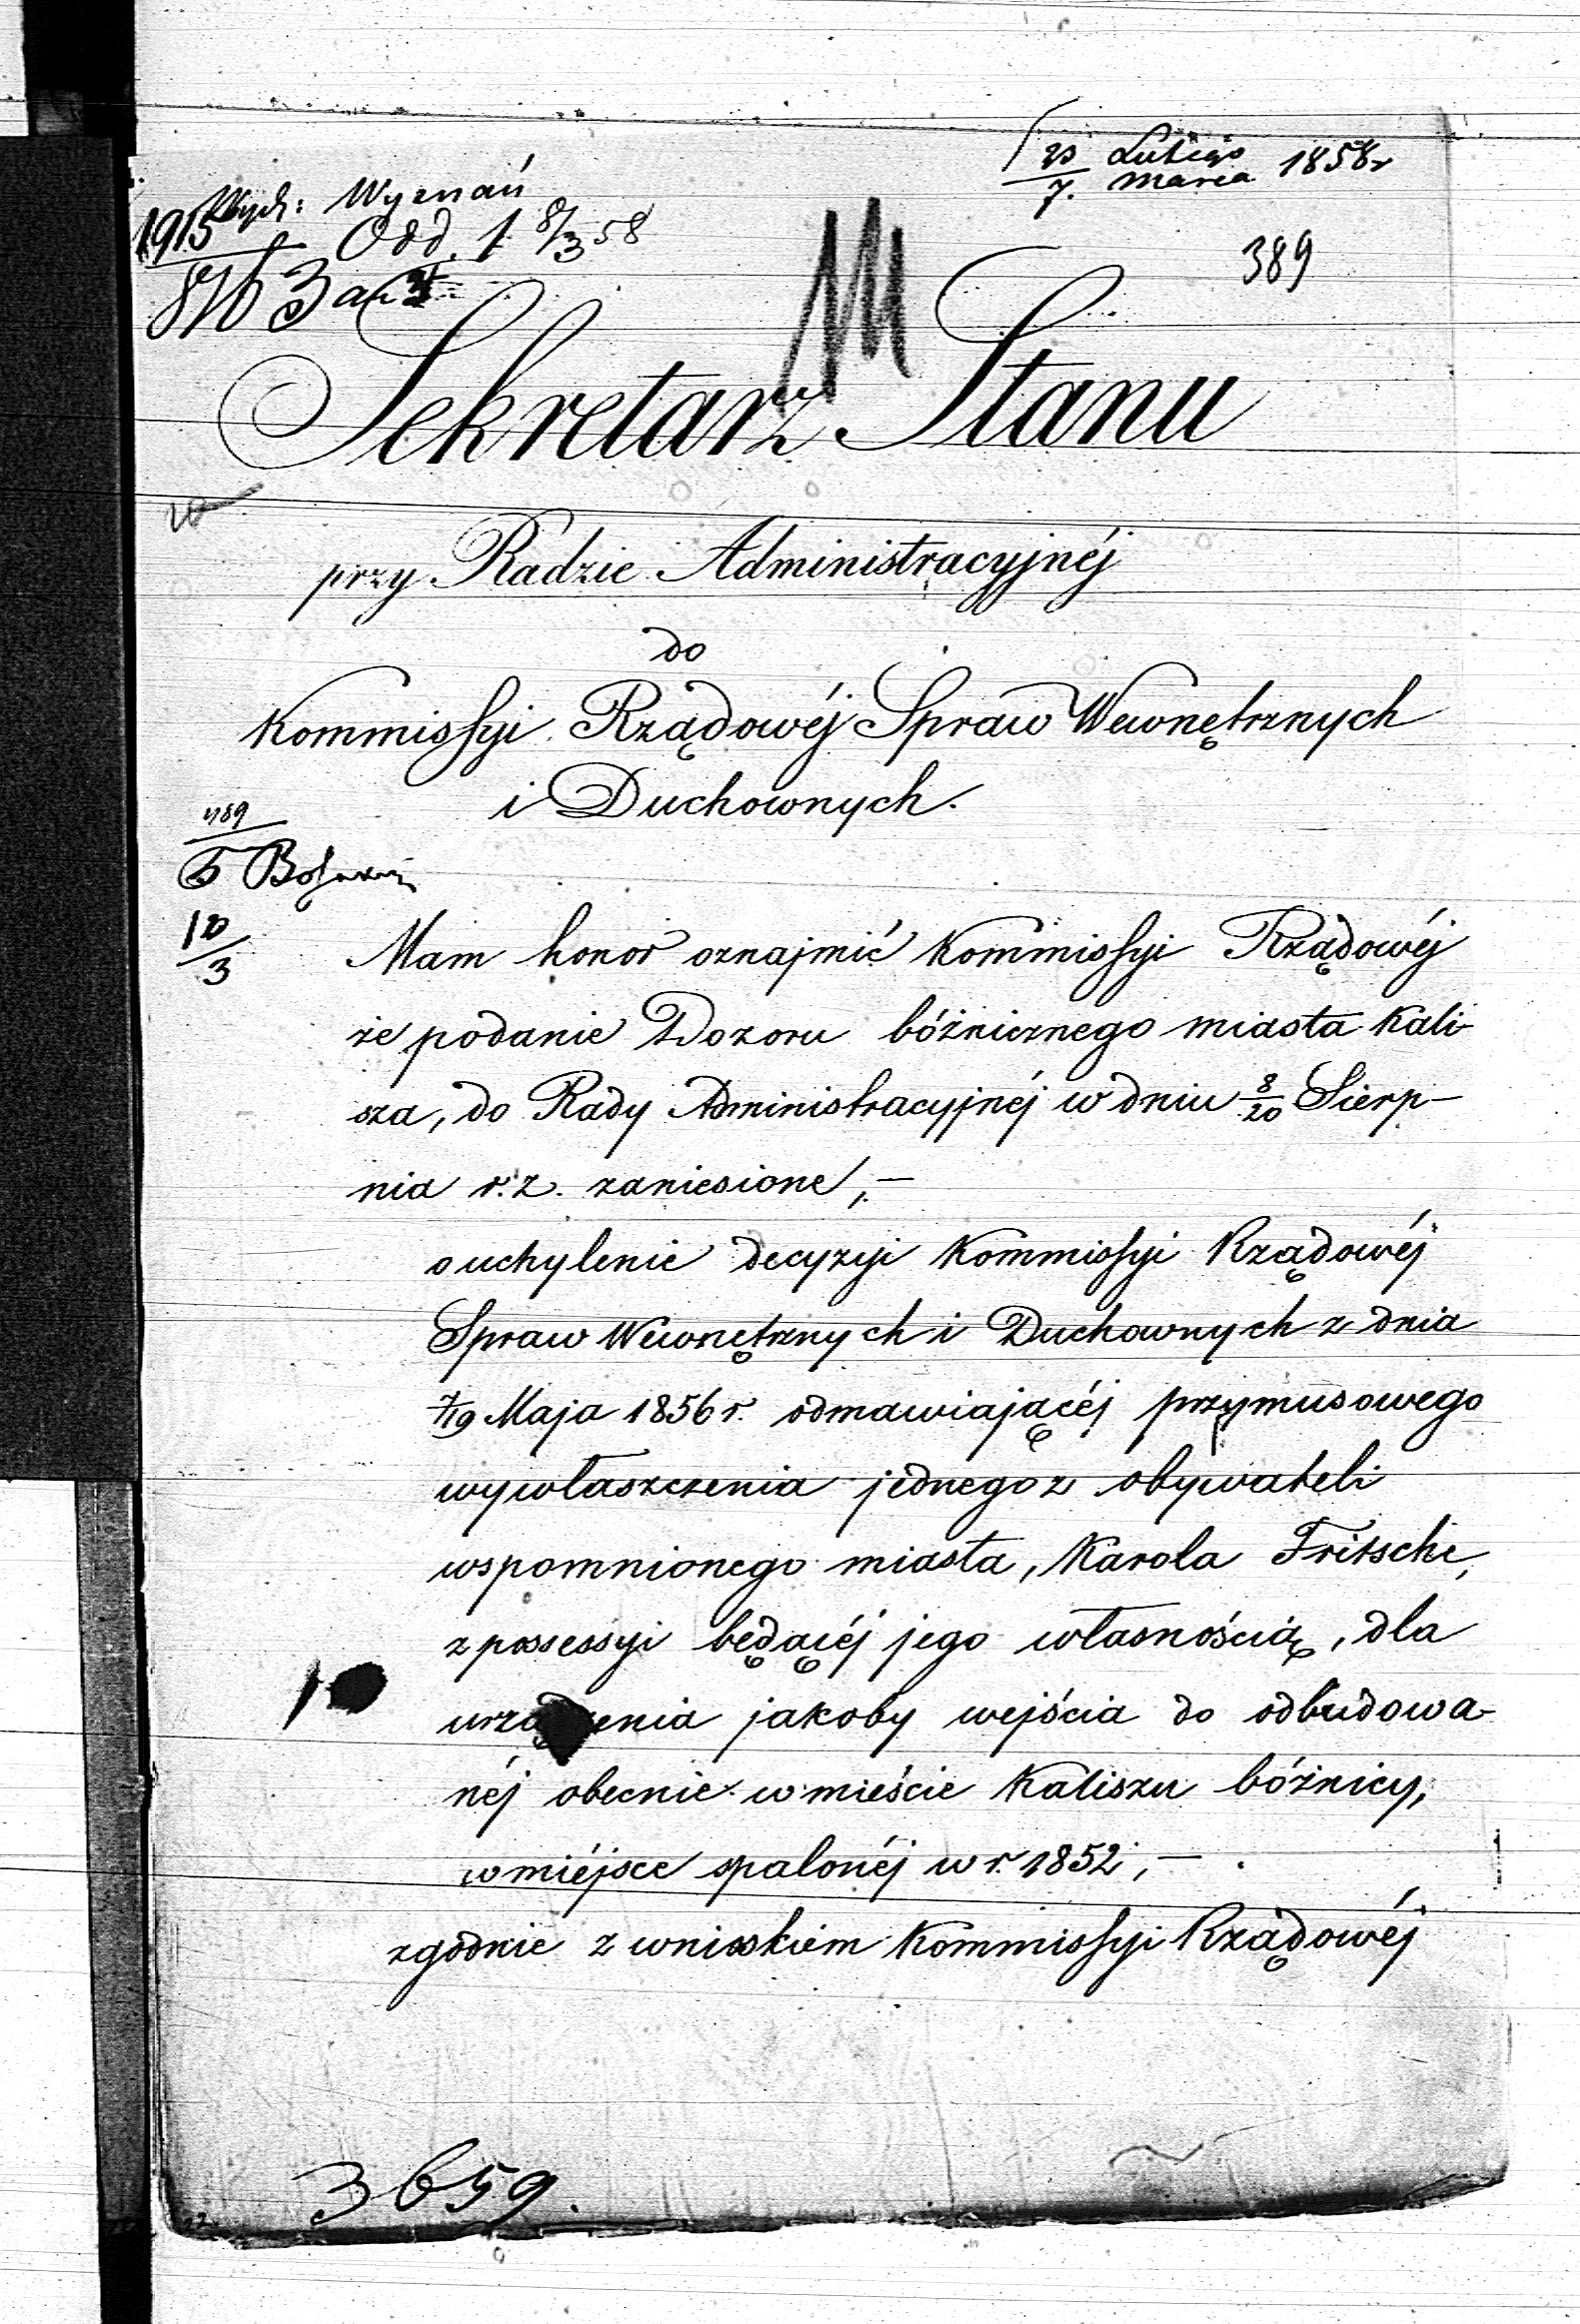 23/7. Lutego Marca 1858 r
Wydz: Wyznań
1915 Odd. 1 8/3 58
389
Sekretarz Stanu
przy Radzie Administracyjnéj
do
Kommissyi Rządowéj Spraw Wewnętrznych
i Duchownych.
10/3
Mam honor oznajmić Kommissyi Rządowéj
że podanie Dozoru bóżnicznego miasta Kali-
sza, do Rady Administracyjnéj w dniu 8/20 Sierp-
nia r.z. zaniesione,-
o uchylenie decyzyi Kommissyi Rządowéj
Spraw Wewnętrznych i Duchownych z dnia
7/19 Maja 1856 r. odmawiającéj przymusowego
wywłaszczenia jednego z obywateli
wspomnionego miasta, Karola Fritsche,
z possessyi będącéj jego własnością, dla
urządzenia jakoby wejścia do odbudowa-
néj obecnie w mieście Kaliszu bóżnicy,
w miéjsce spalonéj w r. 1852,-
zgodnie z wnioskiem Kommissyi Rządowéj
3659.